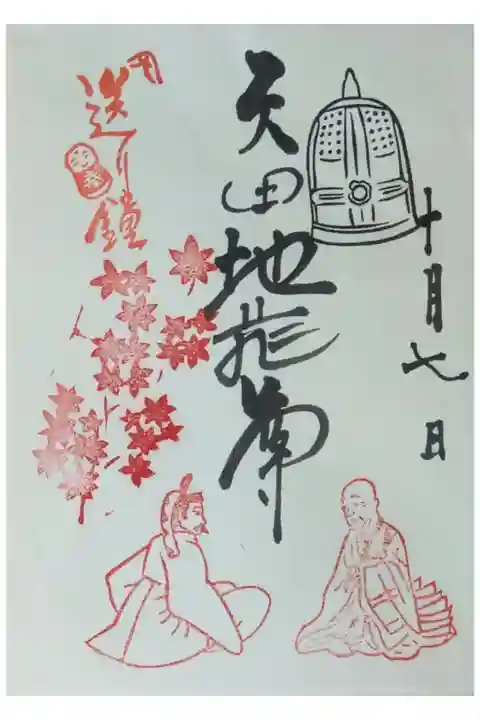 十月七日
矢田地蔵尊
送り鐘